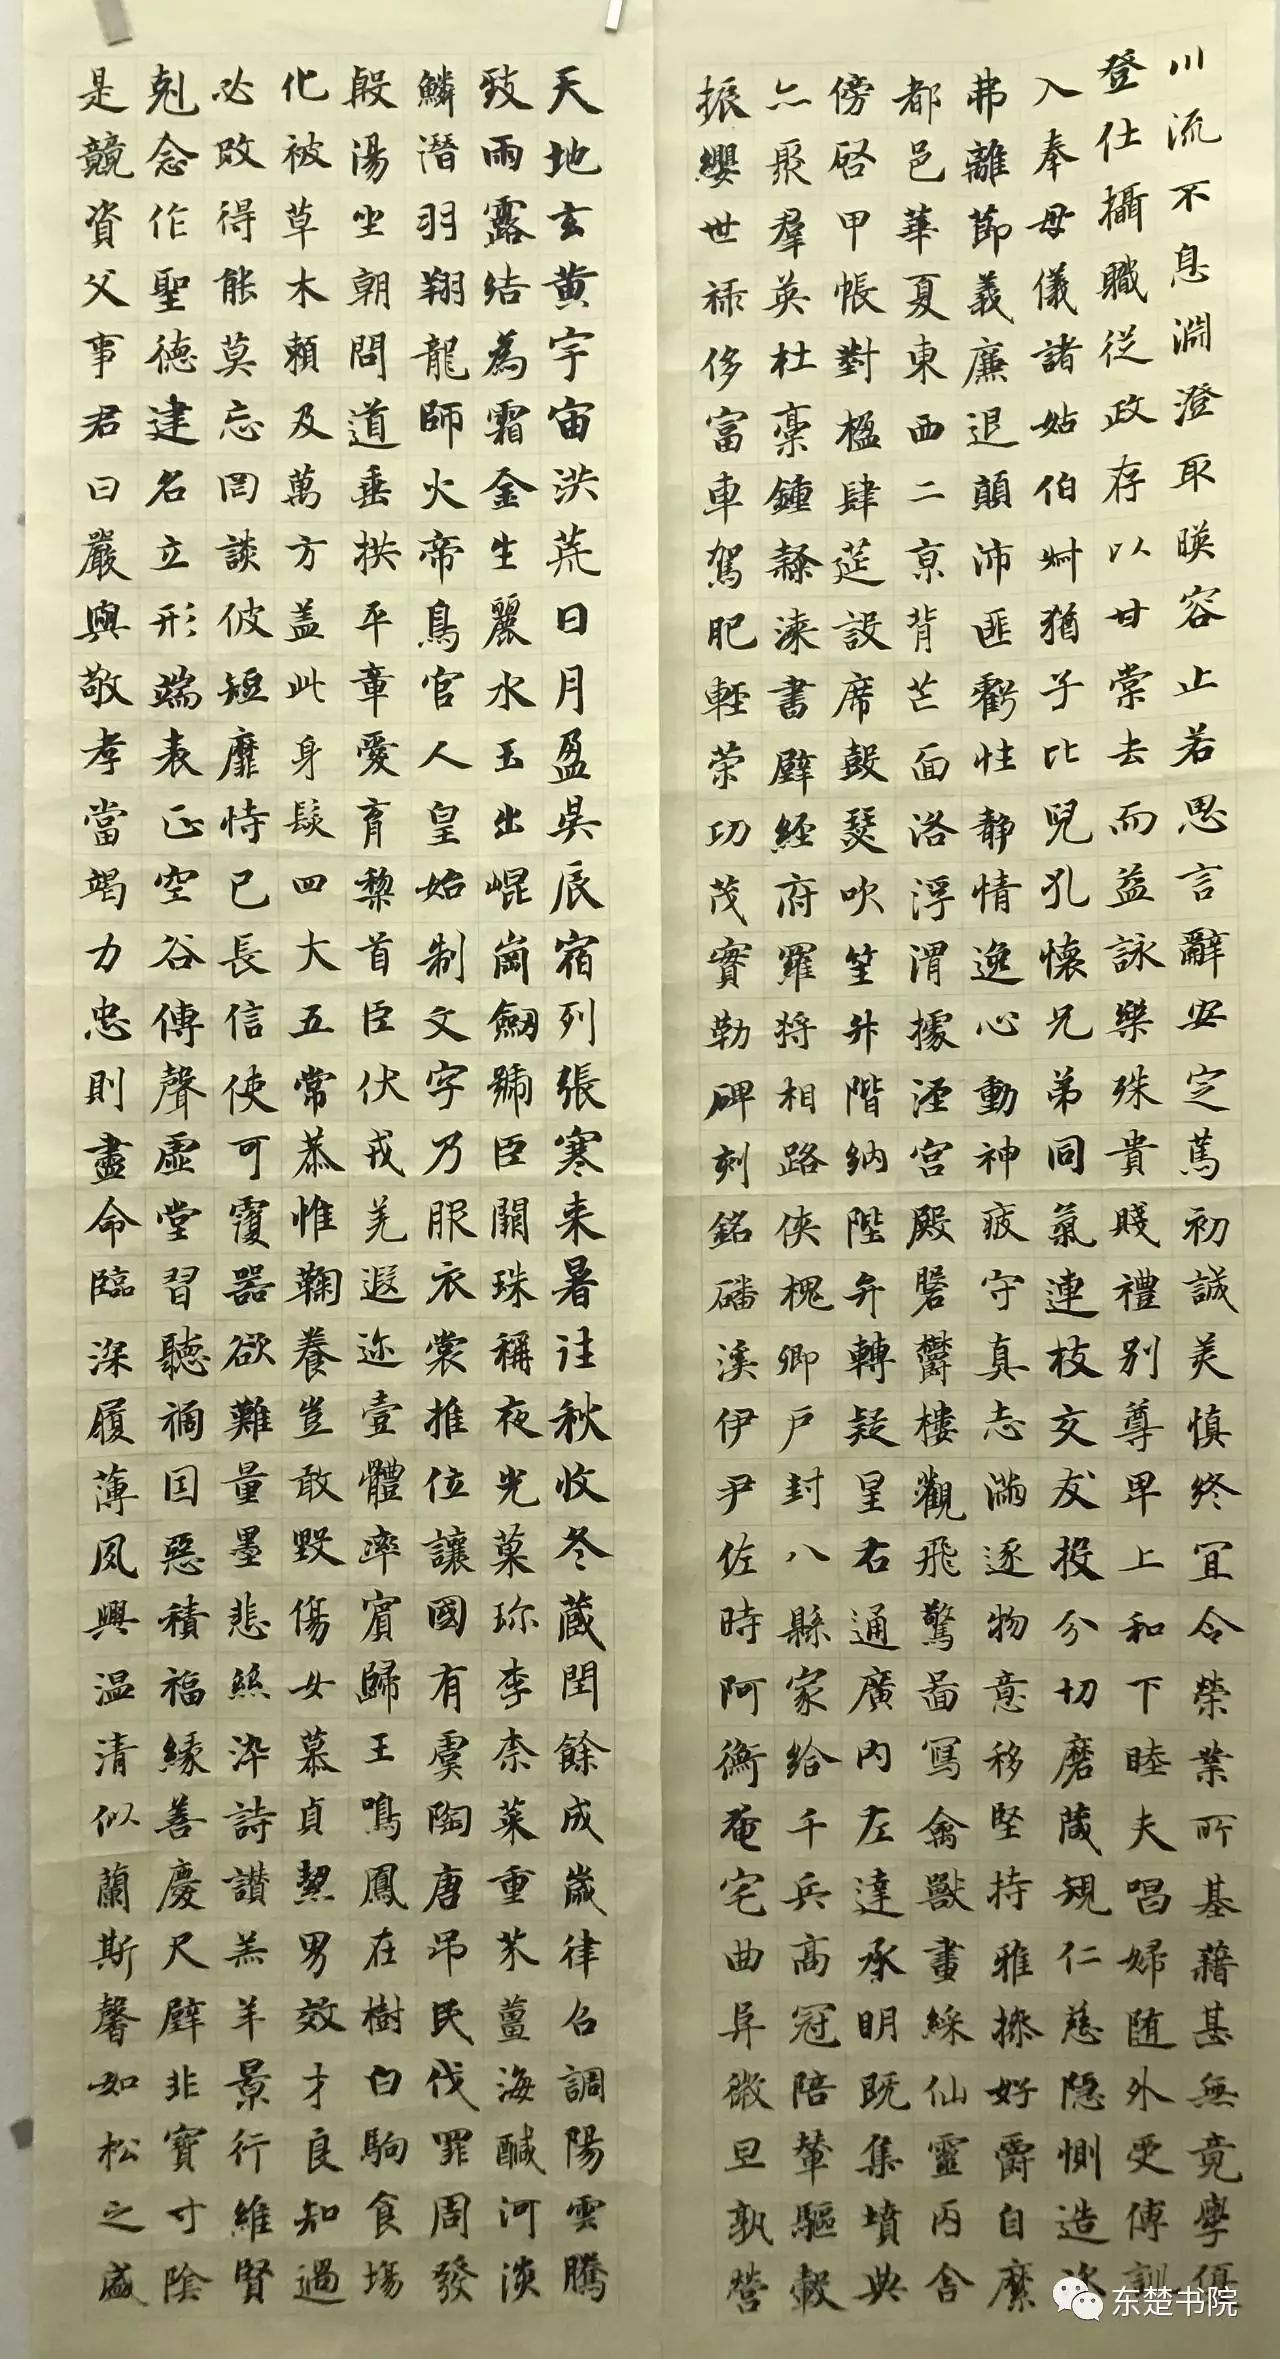 天地玄黄宇宙洪荒日月盈昃辰宿列張寒来暑往秋收冬蔵閏餘成歲律召調陽雲騰
致雨露結為霜金生麗水玉出崐崗劒號臣闕珠稱夜光菓珍李柰菜重芥薑海醎河淡
鱗潛羽翔龍師火帝鳥官人皇始制文字乃服衣裳推位讓國有虞陶唐吊民伐罪周發
殷湯坐朝問道垂拱平章愛育黎首臣伏戎羌遐迩壹體率賓歸王鳴鳳在樹白駒食場
化被草木賴及萬方盖此身髮四大五常恭惟鞠養豈敢毀傷女慕貞絜男效才良知過
必改得能莫忘罔談彼短靡恃己長信使可覆器欲難量墨悲絲染詩讃羔羊景行維賢
剋念作聖德建名立形端表正空谷傳聲虛堂習聽禍因惡積福緣善慶尺璧非寶寸陰
是競資父事君曰嚴與敬孝當竭力忠則盡命臨深履薄夙興温清似蘭斯馨如松之盛
川流不息淵澄取暎容止若思言辭安定篤初誠美慎終宜令榮業所基藉甚無竟學優
登仕攝職從政存以甘棠去而益詠樂殊貴賤禮別尊卑上和下睦夫唱婦随外受傅訓
入奉母儀諸姑伯叔猶子比兒孔懷兄弟同氣連枝交友投分切磨葴規仁慈隐惻造次
弗離節義廉退顛沛匪虧性静情逸心動神疲守真志滿逐物意移堅持雅操好爵自縻
都邑華夏東西二京背芒面洛浮渭據涇宮殿磐鬱樓觀飛驚圖寫禽獸畫綵仙靈丙舍
傍啓甲帳對楹肆莚設席鼓瑟吹笙升階納陛弁轉疑星右通廣内左達承明既集墳典
亦聚羣英杜稾鍾隸漆書壁經府羅将相路俠槐卿户封八縣家給千兵高冠陪輦驅轂
振纓世禄侈富車駕肥輕策功茂實勒碑刻銘磻溪伊尹佐時阿衡奄宅曲阜微旦孰營
东楚书院